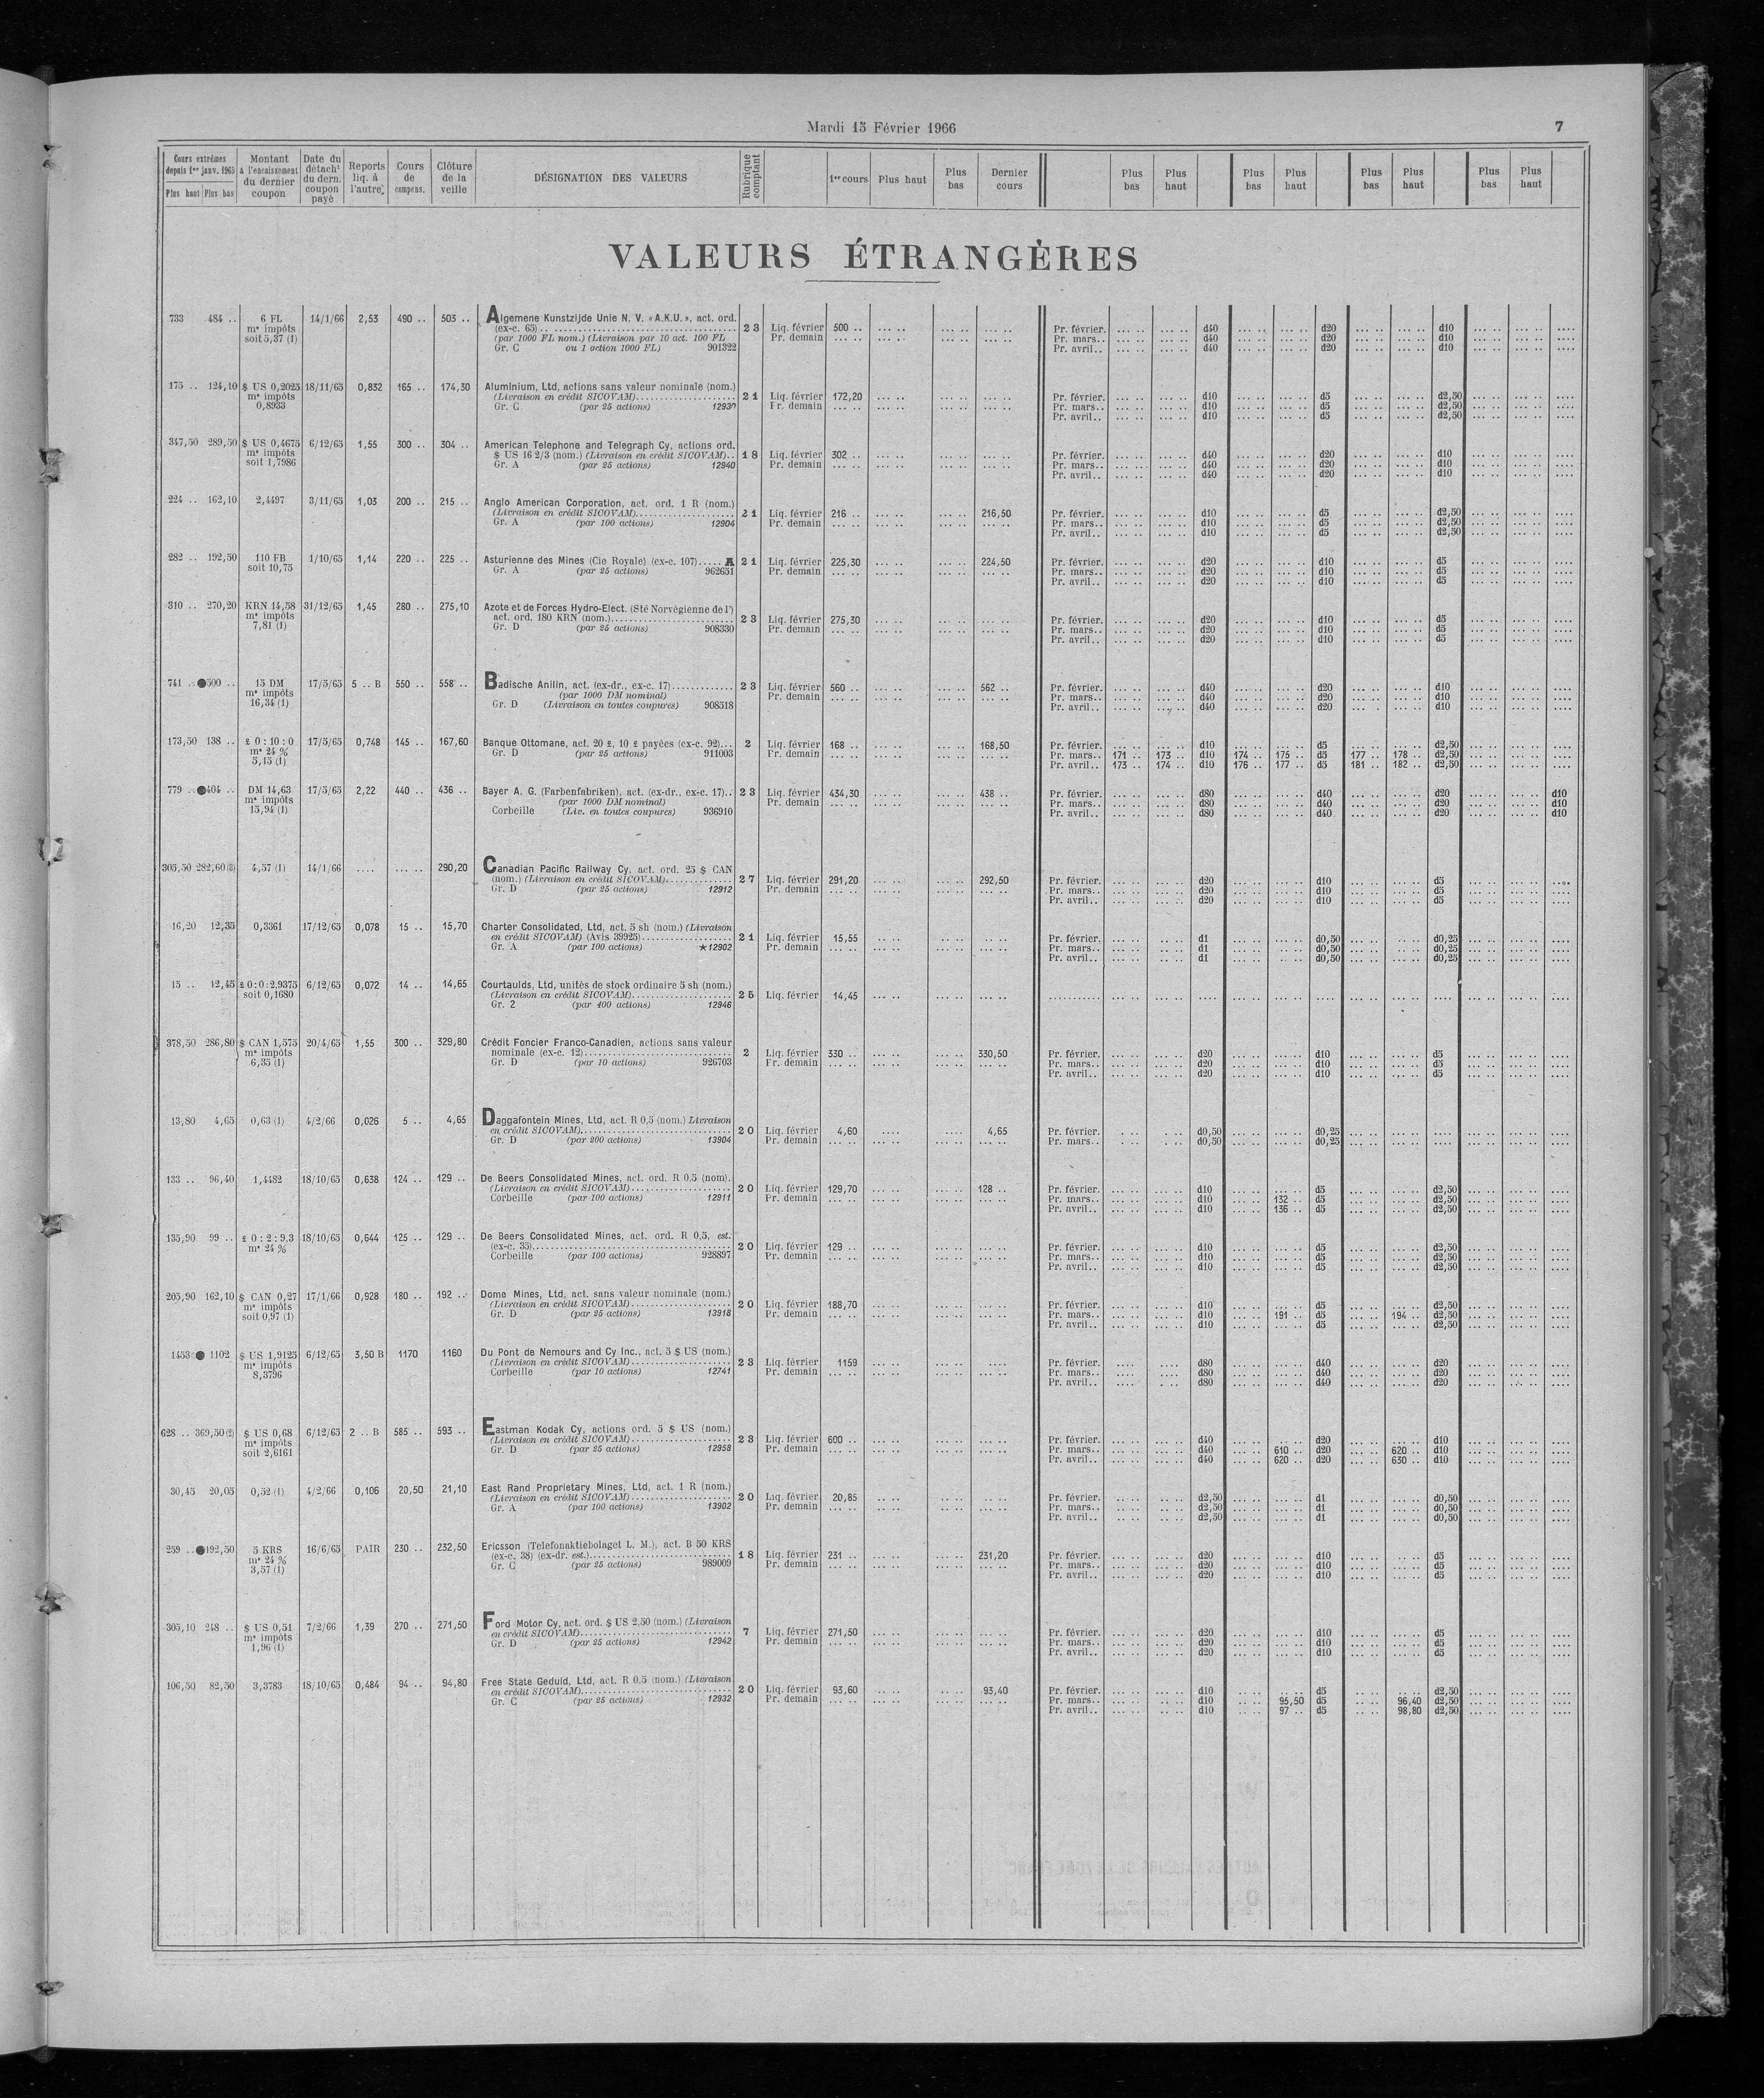 Mardi 15 Février 1966 7
Cours extrêmes depuis 1er janv. 1965 Plus haut Plus bas | Montant à l'encaissement du dernier coupon | Date du détacht du dern. coupon payé | Reports liq. à l'autre | Cours de compens. | Clôture de la veille | DÉSIGNATION DES VALEURS | Rubrique comptant | 1er cours | Plus haut | Plus bas | Dernier cours | Plus bas | Plus haut | Plus bas | Plus haut | Plus bas | Plus haut | Plus bas | Plus haut
VALEURS ÉTRANGÈRES
733 484 .. 6 FL 14/1/66 2,53 490 .. 503 .. Algemene Kunstzijde Unie N. V. « A.K.U. », act. ord.
ms impôts (ex-c. 65) 23 Liq. février 500 .. Pr. février. d40 d20 d10
soit 5,37 (1) (par 1000 FL nom.) (Livraison par 10 act. 100 FL Pr. demain Pr. mars.. d40 d20 d10
Gr. C ou 1 action 1000 FL) 901322 Pr. avril.. d40 d20 d10
175 .. 124,10 $ US 0,2025 18/11/65 0,832 165 .. 174,30 Aluminium, Ltd, actions sans valeur nominale (nom.)
ms impôts (Livraison en crédit SICOVAM) 21 Liq. février 172,20 Pr. février. d10 d5 d2,50
0,8933 Gr. C (par 25 actions) 12930 Pr. demain Pr. mars.. d10 d5 d2,50
Pr. avril.. d10 d5 d2,50
347,50 289,50 $ US 0,4675 6/12/65 1,55 300 .. 304 .. American Telephone and Telegraph Cy, actions ord.
ms impôts $ US 16 2/3 (nom.) (Livraison en crédit SICOVAM).. 18 Liq. février 302 .. Pr. février. d40 d20 d10
soit 1,7986 Gr. A (par 25 actions) 12940 Pr. demain Pr. mars.. d40 d20 d10
Pr. avril.. d40 d20 d10
224 .. 162,10 2,4497 3/11/65 1,03 200 .. 215 .. Anglo American Corporation, act. ord. 1 R (nom.)
(Livraison en crédit SICOVAM) 21 Liq. février 216 .. 216,50 Pr. février. d10 d5 d2,50
Gr. A (par 100 actions) 12904 Pr. demain Pr. mars.. d10 d5 d2,50
Pr. avril.. d10 d5 d2,50
282 .. 192,50 110 FB 1/10/65 1,14 220 .. 225 .. Asturienne des Mines (Cie Royale) (ex-c. 107)..... A 21 Liq. février 225,30 224,50 Pr. février. d20 d10 d5
soit 10,75 Gr. A (par 25 actions) 962651 Pr. demain Pr. mars.. d20 d10 d5
Pr. avril.. d20 d10 d5
310 .. 270,20 KRN 14,58 31/12/65 1,45 280 .. 275,10 Azote et de Forces Hydro-Elect. (Sté Norvégienne de l')
ms impôts act. ord. 180 KRN (nom.) 23 Liq. février 275,30 Pr. février. d20 d10 d5
7,81 (1) Gr. D (par 25 actions) 908330 Pr. demain Pr. mars.. d20 d10 d5
Pr. avril.. d20 d10 d5
741 .. ●500 .. 15 DM 17/5/65 5 .. B 550 .. 558 .. Badische Anilin, act. (ex-dr., ex-c. 17) 23 Liq. février 560 .. 562 .. Pr. février. d40 d20 d10
ms impôts (par 1000 DM nominal) Pr. demain Pr. mars.. d40 d20 d10
16,34 (1) Gr. D (Livraison en toutes coupures) 908518 Pr. avril.. d40 d20 d10
173,50 138 .. £ 0 : 10 : 0 17/5/65 0,748 145 .. 167,60 Banque Ottomane, act. 20 £, 10 £ payées (ex-c. 92)... 2 Liq. février 168 .. 168,50 Pr. février. d10 d5 d2,50
ms 24 % Gr. D (par 25 actions) 911003 Pr. demain Pr. mars.. 171 .. 173 .. d10 174 .. 175 .. d5 177 .. 178 .. d2,50
5,15 (1) Pr. avril.. 173 .. 174 .. d10 176 .. 177 .. d5 181 .. 182 .. d2,50
779 .. ●404 .. DM 14,63 17/5/65 2,22 440 .. 436 .. Bayer A. G. (Farbenfabriken), act. (ex-dr., ex-c. 17).. 23 Liq. février 434,30 438 .. Pr. février. d80 d40 d20 d10
ms impôts (par 1000 DM nominal) Pr. demain Pr. mars.. d80 d40 d20 d10
15,94 (1) Corbeille (Liv. en toutes coupures) 936910 Pr. avril.. d80 d40 d20 d10
305,50 282,60 (3) 4,57 (1) 14/1/66 .... ... .. 290,20 Canadian Pacific Railway Cy, act. ord. 25 $ CAN
(nom.) (Livraison en crédit SICOVAM) 27 Liq. février 291,20 292,50 Pr. février. d20 d10 d5
Gr. D (par 25 actions) 12912 Pr. demain Pr. mars.. d20 d10 d5
Pr. avril.. d20 d10 d5
16,20 12,35 0,3361 17/12/65 0,078 15 .. 15,70 Charter Consolidated, Ltd, act. 5 sh (nom.) (Livraison
en crédit SICOVAM) (Avis 39925) 21 Liq. février 15,55 Pr. février. d1 d0,50 d0,25
Gr. A (par 100 actions) ★12902 Pr. demain Pr. mars.. d1 d0,50 d0,25
Pr. avril.. d1 d0,50 d0,25
15 .. 12,45 £ 0:0:2,9375 6/12/65 0,072 14 .. 14,65 Courtaulds, Ltd, unités de stock ordinaire 5 sh (nom.)
soit 0,1680 (Livraison en crédit SICOVAM) 25 Liq. février 14,45
Gr. 2 (par 400 actions) 12946
378,50 286,80 $ CAN 1,575 20/4/65 1,55 300 .. 329,80 Crédit Foncier Franco-Canadien, actions sans valeur
ms impôts nominale (ex-c. 12) 2 Liq. février 330 .. 330,50 Pr. février. d20 d10 d5
6,35 (1) Gr. D (par 10 actions) 926703 Pr. demain Pr. mars.. d20 d10 d5
Pr. avril.. d20 d10 d5
13,80 4,65 0,63 (1) 4/2/66 0,026 5 .. 4,65 Daggafontein Mines, Ltd, act. R 0,5 (nom.) Livraison
en crédit SICOVAM) 20 Liq. février 4,60 4,65 Pr. février. d0,50 d0,25
Gr. D (par 200 actions) 13904 Pr. demain Pr. mars.. d0,50 d0,25
133 .. 96,40 1,4482 18/10/65 0,638 124 .. 129 .. De Beers Consolidated Mines, act. ord. R 0,5 (nom).
(Livraison en crédit SICOVAM) 20 Liq. février 129,70 128 .. Pr. février. d10 d5 d2,50
Corbeille (par 100 actions) 12911 Pr. demain Pr. mars.. d10 132 .. d5 d2,50
Pr. avril.. d10 136 .. d5 d2,50
135,90 99 .. £ 0 : 2 : 9,3 18/10/65 0,644 125 .. 129 .. De Beers Consolidated Mines, act. ord. R 0,5, est.
ms 24 % (ex-c. 35) 20 Liq. février 129 .. Pr. février. d10 d5 d2,50
Corbeille (par 100 actions) 928897 Pr. demain Pr. mars.. d10 d5 d2,50
Pr. avril.. d10 d5 d2,50
205,90 162,10 $ CAN 0,27 17/1/66 0,928 180 .. 192 .. Dome Mines, Ltd, act. sans valeur nominale (nom.)
ms impôts (Livraison en crédit SICOVAM) 20 Liq. février 188,70 Pr. février. d10 d5 d2,50
soit 0,97 (1) Gr. D (par 25 actions) 13918 Pr. demain Pr. mars.. d10 191 .. d5 194 .. d2,50
Pr. avril.. d10 d5 d2,50
1453 ● 1102 $ US 1,9125 6/12/65 3,50 B 1170 1160 Du Pont de Nemours and Cy Inc., act. 5 $ US (nom.)
ms impôts (Livraison en crédit SICOVAM) 23 Liq. février 1159 Pr. février. d80 d40 d20
8,3796 Corbeille (par 10 actions) 12741 Pr. demain Pr. mars.. d80 d40 d20
Pr. avril.. d80 d40 d20
628 .. 369,50 (2) $ US 0,68 6/12/65 2 .. B 585 .. 593 .. Eastman Kodak Cy, actions ord. 5 $ US (nom.)
ms impôts (Livraison en crédit SICOVAM) 23 Liq. février 600 .. Pr. février. d40 d20 d10
soit 2,6161 Gr. D (par 25 actions) 12958 Pr. demain Pr. mars.. d40 610 .. d20 620 .. d10
Pr. avril.. d40 620 .. d20 630 .. d10
30,45 20,05 0,52 (1) 4/2/66 0,106 20,50 21,10 East Rand Proprietary Mines, Ltd, act. 1 R (nom.)
(Livraison en crédit SICOVAM) 20 Liq. février 20,85 Pr. février. d2,50 d1 d0,50
Gr. A (par 100 actions) 13902 Pr. demain Pr. mars.. d2,50 d1 d0,50
Pr. avril.. d2,50 d1 d0,50
259 .. ●192,50 5 KRS 16/6/65 PAIR 230 .. 232,50 Ericsson (Telefonaktiebolaget L. M.), act. B 50 KRS
ms 24 % (ex-c. 38) (ex-dr. est.) 18 Liq. février 231 .. 231,20 Pr. février. d20 d10 d5
3,57 (1) Gr. C (par 25 actions) 989009 Pr. demain Pr. mars.. d20 d10 d5
Pr. avril.. d20 d10 d5
305,10 248 .. $ US 0,51 7/2/66 1,39 270 .. 271,50 Ford Motor Cy, act. ord. $ US 2,50 (nom.) (Livraison
ms impôts en crédit SICOVAM) 7 Liq. février 271,50 Pr. février. d20 d10 d5
1,96 (1) Gr. D (par 25 actions) 12942 Pr. demain Pr. mars.. d20 d10 d5
Pr. avril.. d20 d10 d5
106,50 82,50 3,3783 18/10/65 0,484 94 .. 94,80 Free State Geduld, Ltd, act. R 0,5 (nom.) (Livraison
en crédit SICOVAM) 20 Liq. février 93,60 93,40 Pr. février. d10 d5 d2,50
Gr. C (par 25 actions) 12932 Pr. demain Pr. mars.. d10 95,50 d5 96,40 d2,50
Pr. avril.. d10 97 .. d5 98,80 d2,50